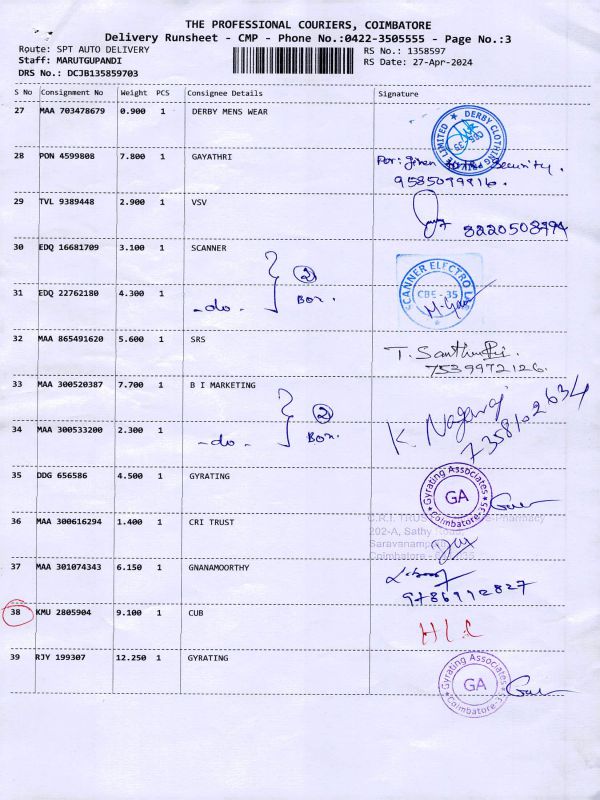 THE PROFESSIONAL COURIERS, COIMBATORE
Delivery Runsheet - CMP - Phone No.:0422-3505555 - Page No.:3
Route: SPT AUTO DELIVERY RS No.: 1358597
Staff: MARUTGUPANDI RS Date: 27-Apr-2024
DRS No.: DCJB135859703
S No Consignment No Weight PCS Consignee Details Signature
27 MAA 703478679 0.900 1 DERBY MENS WEAR DERBY CLOTHING LIMITED
28 PON 4599808 7.800 1 GAYATHRI Security.
9585099916.
29 TVL 9389448 2.900 1 VSV
8220508974
30 EDQ 16681709 3.100 1 SCANNER SCANNER ELECTRO
2 Box. CBE - 35
31 EDQ 22762180 4.300 1 -do.
32 MAA 865491620 5.600 1 SRS T.
7539972126.
33 MAA 300520387 7.700 1 B I MARKETING K. Nagaraj
2 Box. 7358102634
34 MAA 300533200 2.300 1 -do.
35 DDG 656586 4.500 1 GYRATING Gyrating Associates GA Coimbatore-35
36 MAA 300616294 1.400 1 CRI TRUST C.R.I. Pharmacy
202-A, Sathy
Coimbatore
37 MAA 301074343 6.150 1 GNANAMOORTHY
9786992827
38 KMU 2805904 9.100 1 CUB
39 RJY 199307 12.250 1 GYRATING Gyrating Associates GA Coimbatore-35